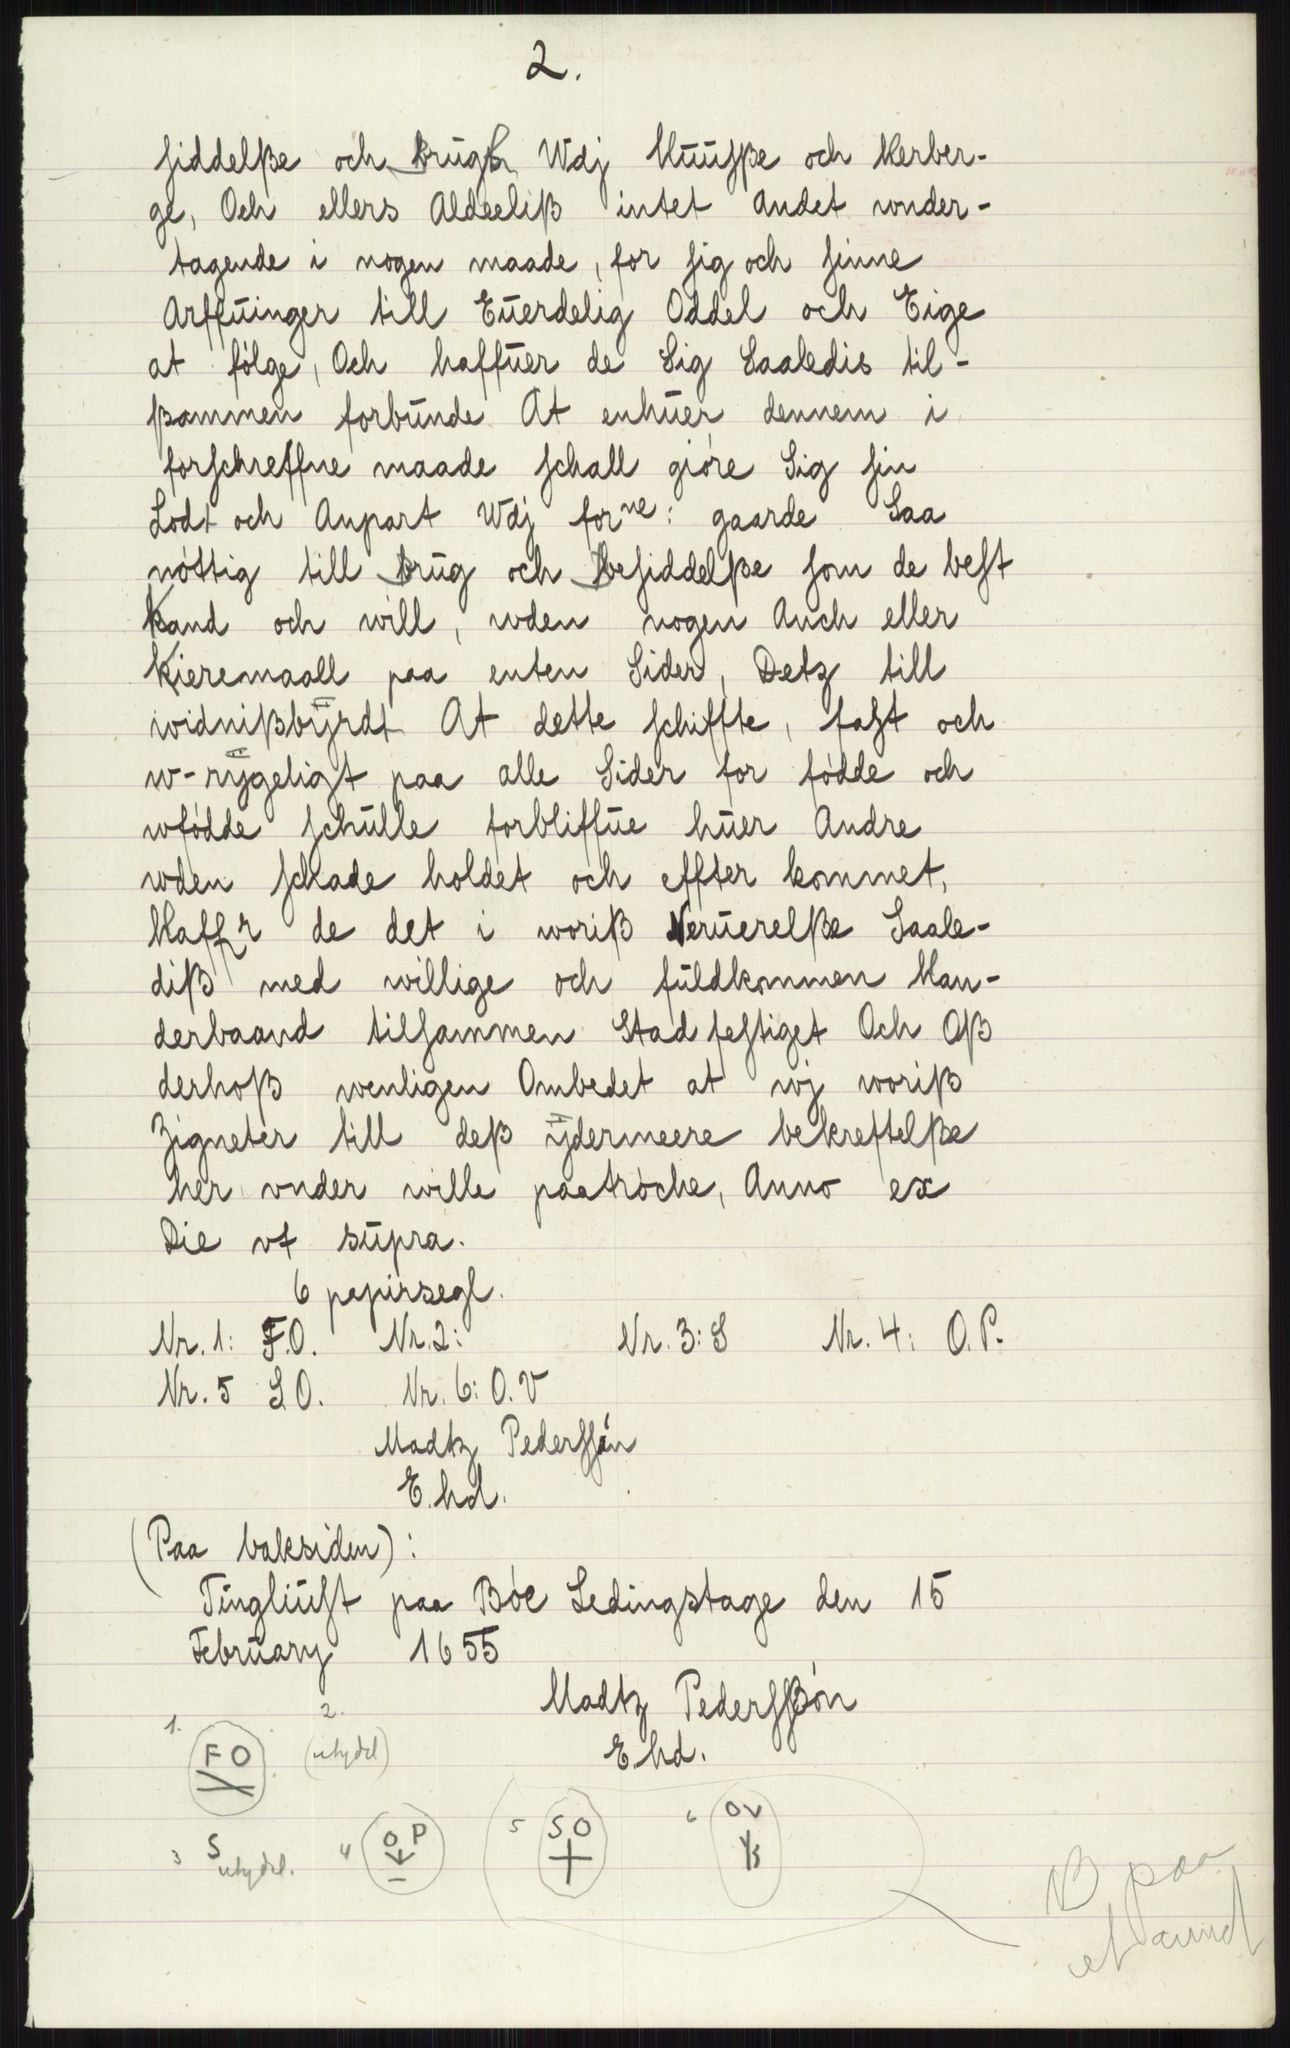 2.
siddelße och brugh Wdj Huusße och Herber-
ge, Och ellers Aldeeliß intet andet wnder-
tagende i nogen maade, for sig och sinne
Arffuinger till Euerdelig Oddel och Eige
at følge, Och haffuer de Sig Saaledis til-
ßammen forbunde At enhuer dennem i
forschreffne maade schall giøre Sig sin
Lodt och Anpart Wdj forne: gaarde Saa
nøttig till brug och besiddelße som de best
kand och will, wden nogen Anch eller
kieremaall paa enten Sider, Detz till
widnißbyrdt At dette schiffte, fast och
w-rygeligt paa alle Sider for fødde och
wfødde schulle forbliffue huer Andre
wden schade holdet och effter kommet,
Haffr de det i woriß Neruerelße Saale-
diß med willige och fuldkommen Han-
derbaand tilsammen Stadfestiget Och Oß
derhoß wenligen Ombedet at wj woriß
Zigneter till deß ydermeere bekreftelße
her vnder wille paatrøche, Anno ex
Die vt supra.
6 papirsegl.
Nr. 1: F.O. Nr. 2: Nr. 3: S Nr. 4: O.P.
Nr. 5 S.O. Nr. 6: O.V
Madtz Pederssøn
E.hd.
(Paa baksiden):
Tingliust paa Bøe Ledingstage den 15
February 1655
Madtz Pederssßøn
E.hd.
1. FO
2. (utydel)
3 S utydel.
4 OP
5 SO
6 OV
B paa